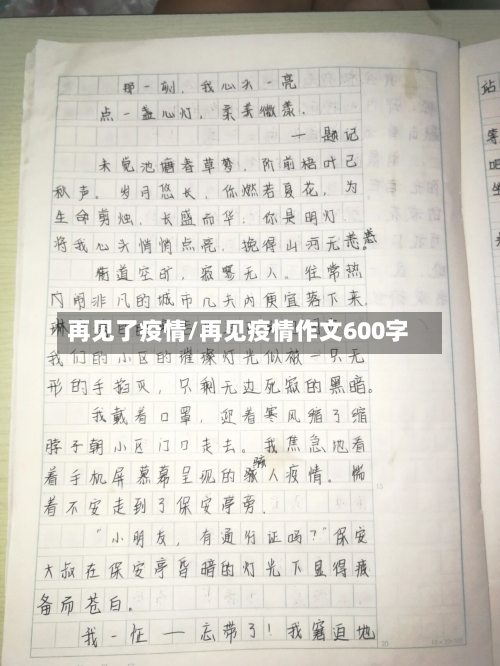 那一刻,我心头一亮
点一盏心灯,柔美微漾.
——题记
未觉池塘春草梦,阶前梧叶已
秋声。岁月悠长,你燃若夏花,为
生命剪烛,长盛而华,你是明灯
将我心头悄悄点亮,挽得山河无恙。
街道空旷,寂寥无人。往常热
闹非凡的城市几天内便宜落下来
再见了疫情/再见疫情作文600字
我们的小区的璀璨灯光似被一只无
形的手掐灭,只剩无边死寂的黑暗。
我戴着口罩,迎着寒风缩了缩
脖子朝小区门口走去。我焦急地看
着手机屏幕幕呈现的骇人疫情。惴
着不安走到了保安亭旁.
"小朋友,有通行证吗?"保安
大叔在保安亭昏暗的灯光下显得疲
备而苍白。
我一怔——忘带了!我窘迫地
站
等